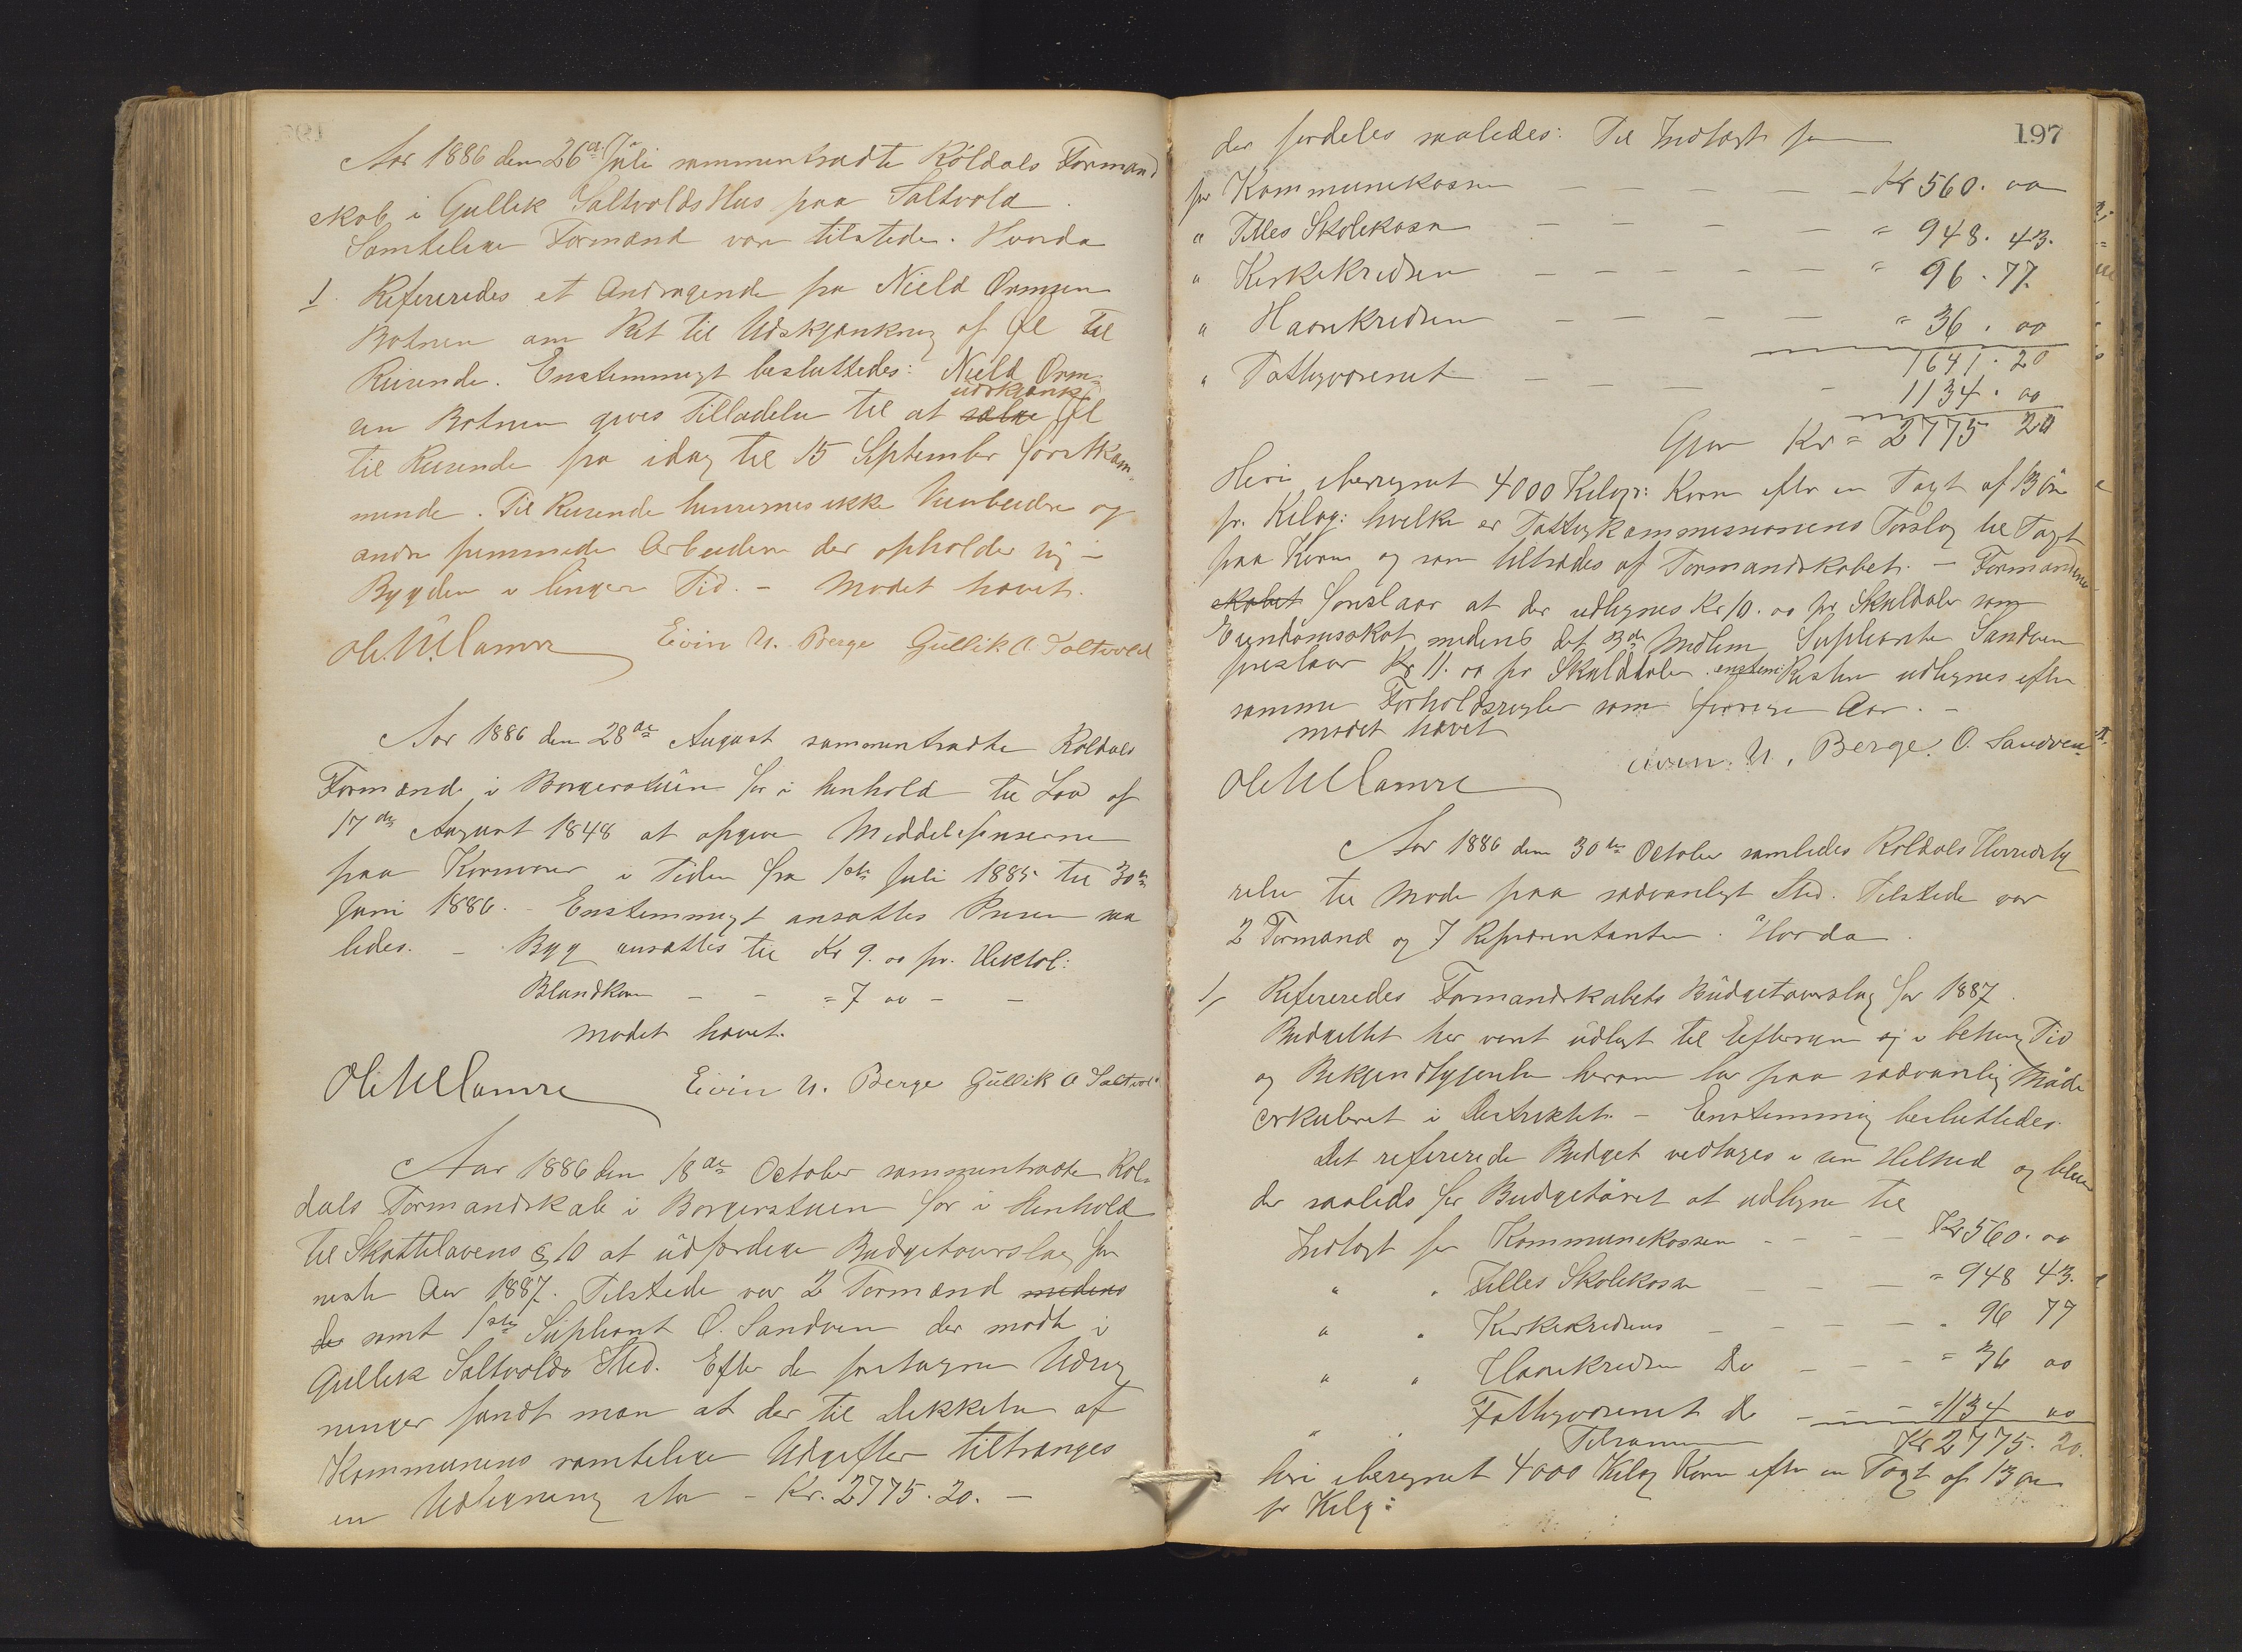 Aar 1886 den 26de Juli sammentraadte Röldals Formand
skab i Gullik Saltvolds Hus paa Saltvold.
Samtelige Formænd var tilstede. Hvorda
1. Refereredes et Andragende fra Nield Ormsen
Botnen om Ret til Udskjænkning af Øl til
Reisende. Enstemmigt besluttedes: Nield Orm-
udskjænke
sen Botnen gives Tilladelse til at sælge Øl
til Reisende fra idag til 15 September førstkom-
mende. Til Reisende henregnes ikke Veiarbeidere og
andre fremmede Arbeidere der opholder sig i
Bygden i længere Tid. - Mødet hævet.
Ole M. Hamre Eivin N. Berge Gullik A. Saltvold
Aar 1886 den 28de August sammentraadte Röldals
Formænd i Borgerstuen for i henhold til Lov af
17de August 1848 at opgive Middelpriserne
paa Kornvarer i Tiden fra 1ste Juli 1885 til 30te
Juni 1886. - Enstemmigt ansattes Prisen saa
ledes. - Byg ansattes til Kr 9.00 pr. Hektol:
Blandkorn - - = 7 00 - -
Mødet hævet.
Ole M Hamre Eivin N. Berge Gullik A Saltvold
Aar 1886 den 18de October sammentraadte Röl-
dals Formandskab i Borgerstuen for i Henhold
til Skattelovens § 10 at udfærdige Budgetoverslag for
neste Aar 1887. Tilstede var 2 Formænd medens
de samt 1ste Suppleant O. Sandven der mødte i
Gullik Saltvolds Sted. Efter de foretagne Udreg
ninger fandt man at der til Dekkelse af
Kommunens samtelige Udgifter tiltrænges
en Udligning stor - Kr. 2775.20. -
197
der fordeles saaledes: Til Indtægt for
for Kommunekassen - - - - - Kr 560.00
" Felles Skolekasse - - - - - = 948.43.
" Kirkekredsen - - - - - = 96.77.
" Haarekredsen - - - - - = 36.00
1641.20
" Fattigvæsenet - - - - 1134.00
Gjør Kr = 2775 20
Heri iberegnet 4000 Kilogr: Korn efter en Taxt af 13 Öre
pr. Kilog: hvilke er Fattigkommissionens Forslag til Taxt
paa Korn og som tiltrædes af Formandskabet. - Formændene
skabet foreslaar at der udlignes Kr 10.00 pr Skylddaler som
Eiendomsskat medens det 3die Medlem Suppleante Sandven
foreslaar Kr 11.00 pr Skylddaler. enstem: Resten udlignes efter
samme Forholdsregler som forrige Aar. -
mødet hævet
Ole M Hamre Eivin N. Berge. O. Sandven
Aar 1886 den 30te October samledes Röldals Herredsty
relse til Møde paa sædvanligt Sted. Tilstede var
2 Formænd og 7 Repræsentanter. Hvorda
1, Refereredes Formandskabets Budgetoverslag for 1887.
Budgettet har veret udlagt til Eftersyn og i behørig Tid
og Bekjendtgjørelse herom har paa sædvanlig Maade
cirkuleret i Distriktet. - Enstemmig besluttedes.
Det refererede Budget vedtages i sin Helhed og bliver
der saaledes for Budgetåret at udligne til
Indtægt for Kommunekassen - - - - Kr 560.00
" " Felles Skolekasse - - - = 948 43.
" " Kirkekredsens - - - - - 96 77
" " Haarekredsen Do - - - = 36 00
" " Fattigvæsenet Do - - - = 1134 00
Tilsammen Kr 2775.20.
heri iberegnet 4000 Kilog Korn efter en Taxt af 13 Öre
pr Kilg: